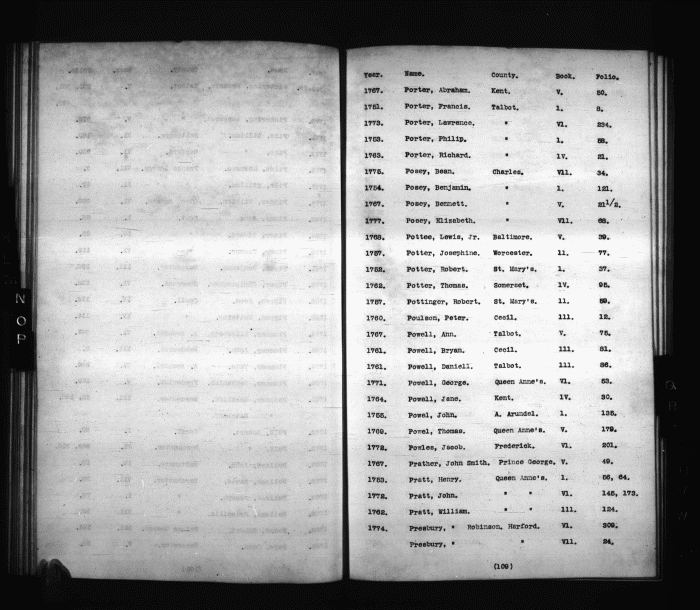 Year. Name. County. Book. Folio.
1767. Porter, Abraham. Kent. V. 50.
1751. Porter, Francis. Talbot. 1. 8.
1773. Porter, Lawrence. " Vl. 234.
1753. Porter, Philip. " 1. 88.
1763. Porter, Richard. " 1V. 21.
1775. Posey, Bean. Charles. Vll. 34.
1754. Posey, Benjamin. " 1. 121.
1767. Posey, Bennett. " V. 21 1/2.
1777. Posey, Elizabeth. " Vll. 68.
1768. Pottee, Lewis, Jr. Baltimore. V. 39.
1757. Potter, Josephine. Worcester. 11. 77.
1752. Potter, Robert. St. Mary's. 1. 37.
1762. Potter, Thomas. Somerset. 1V. 95.
1757. Pottinger, Robert. St. Mary's. 11. 59.
1760. Poulson, Peter. Cecil. 111. 12.
1767. Powell, Ann. Talbot. V. 75.
1761. Powell, Bryan. Cecil. 111. 81.
1761. Powell, Daniell. Talbot. 111. 86.
1771. Powell, George. Queen Anne's. Vl. 53.
1764. Powell, Jane. Kent. 1V. 30.
1755. Powel, John. A. Arundel. 1. 135.
1769. Powel, Thomas. Queen Anne's. V. 179.
1772. Powles, Jacob. Frederick. Vl. 201.
1767. Prather, John Smith. Prince George. V. 49.
1753. Pratt, Henry. Queen Anne's. 1. 56, 64.
1772. Pratt, John. " " Vl. 145, 173.
1762. Pratt, William. " " 111. 124.
1774. Presbury, " Robinson, Harford. Vl. 309.
Presbury, " " Vll. 24.
(109)
N
O
P